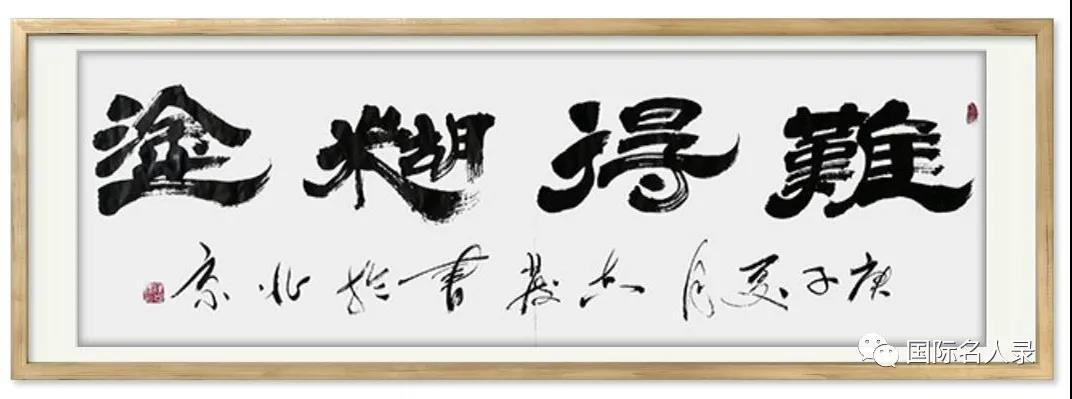 難得糊塗
庚子夏月書於北京
国际名人录